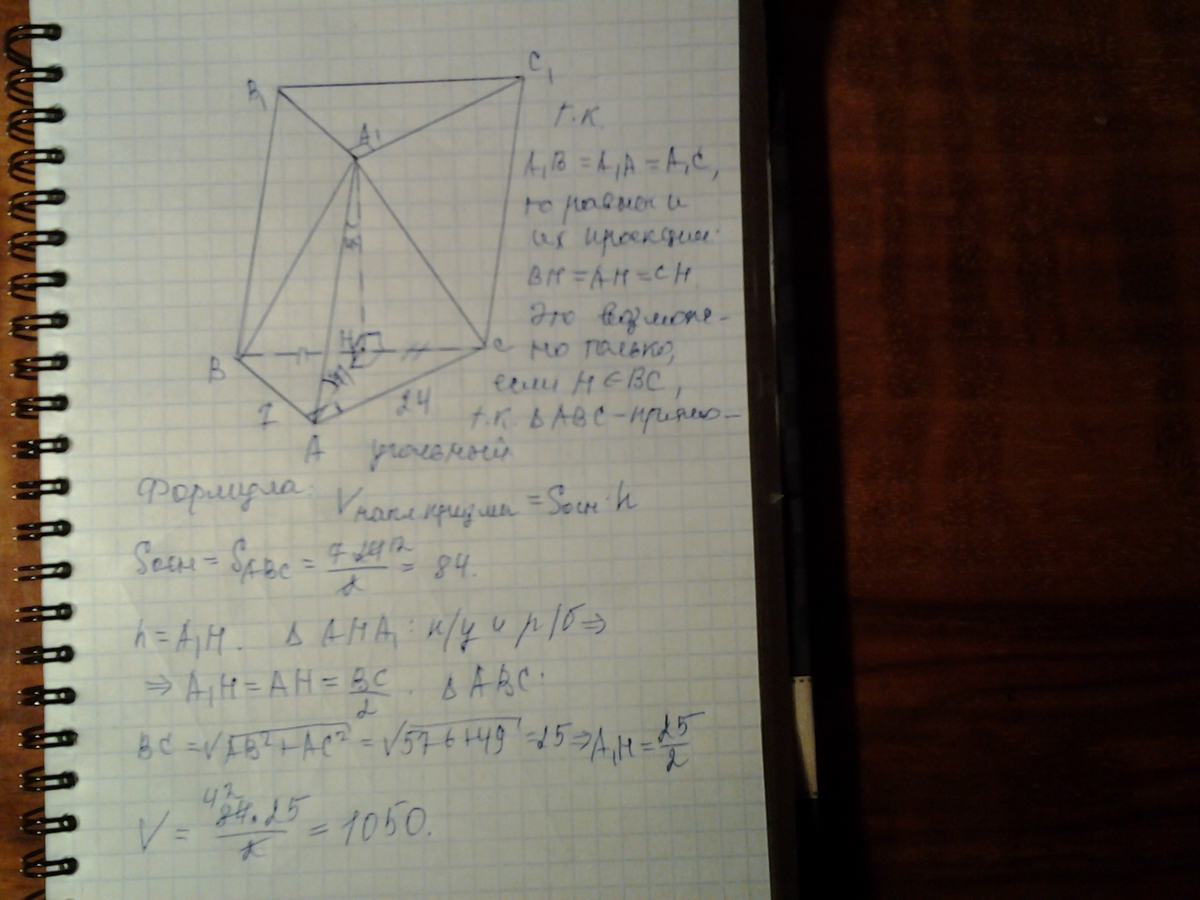 B₁
C₁
A₁
т.к.
A₁B = A₁A = A₁C,
то равны и
их проекции:
BH = AH = CH.
Это возмож-
но только,
если H ∈ BC,
т.к. ΔABC – прямо-
угольный
H
B
C
7
24
A
Формула:
Vнакл призмы = Sосн · h
Sосн = SABC = 7·24 12 / 2 = 84.
h = A₁H. Δ AHA₁: п/у и р/б ⇒
⇒ A₁H = AH = BC/2. Δ ABC:
BC = √AB² + AC² = √576+49 = 25 ⇒ A₁H = 25/2
V = 42 84·25 / 2 = 1050.